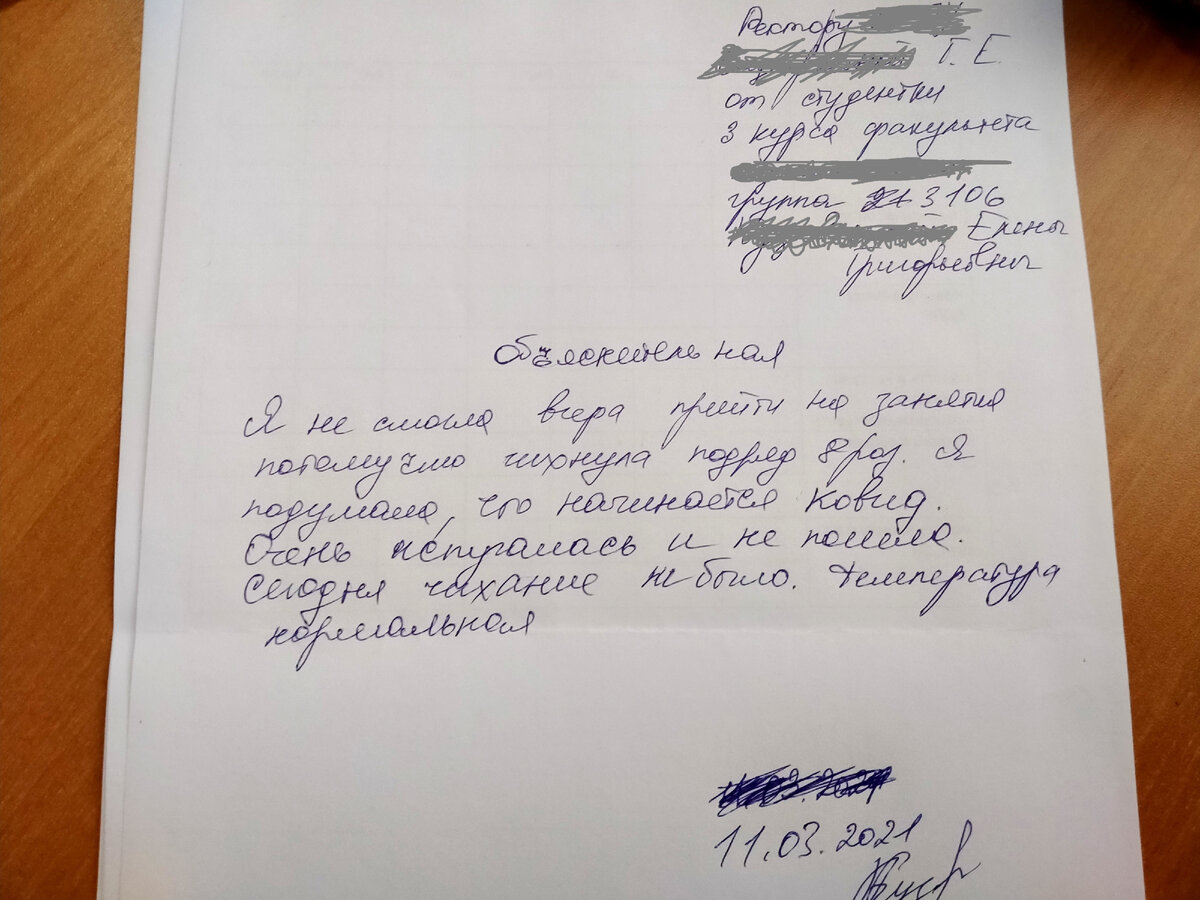 Ректору
Г. Е.
от студентки
3 курса факультета
группа 3106
Елены
Григорьевны
Объяснительная
Я не смогла вчера прийти на занятия
потомучто чихнула подряд 8 раз. Я
подумала, что начинается ковид.
Очень испугалась и не пошла.
Сегодня чихание не было. Температура
нормальная
11.03.2021